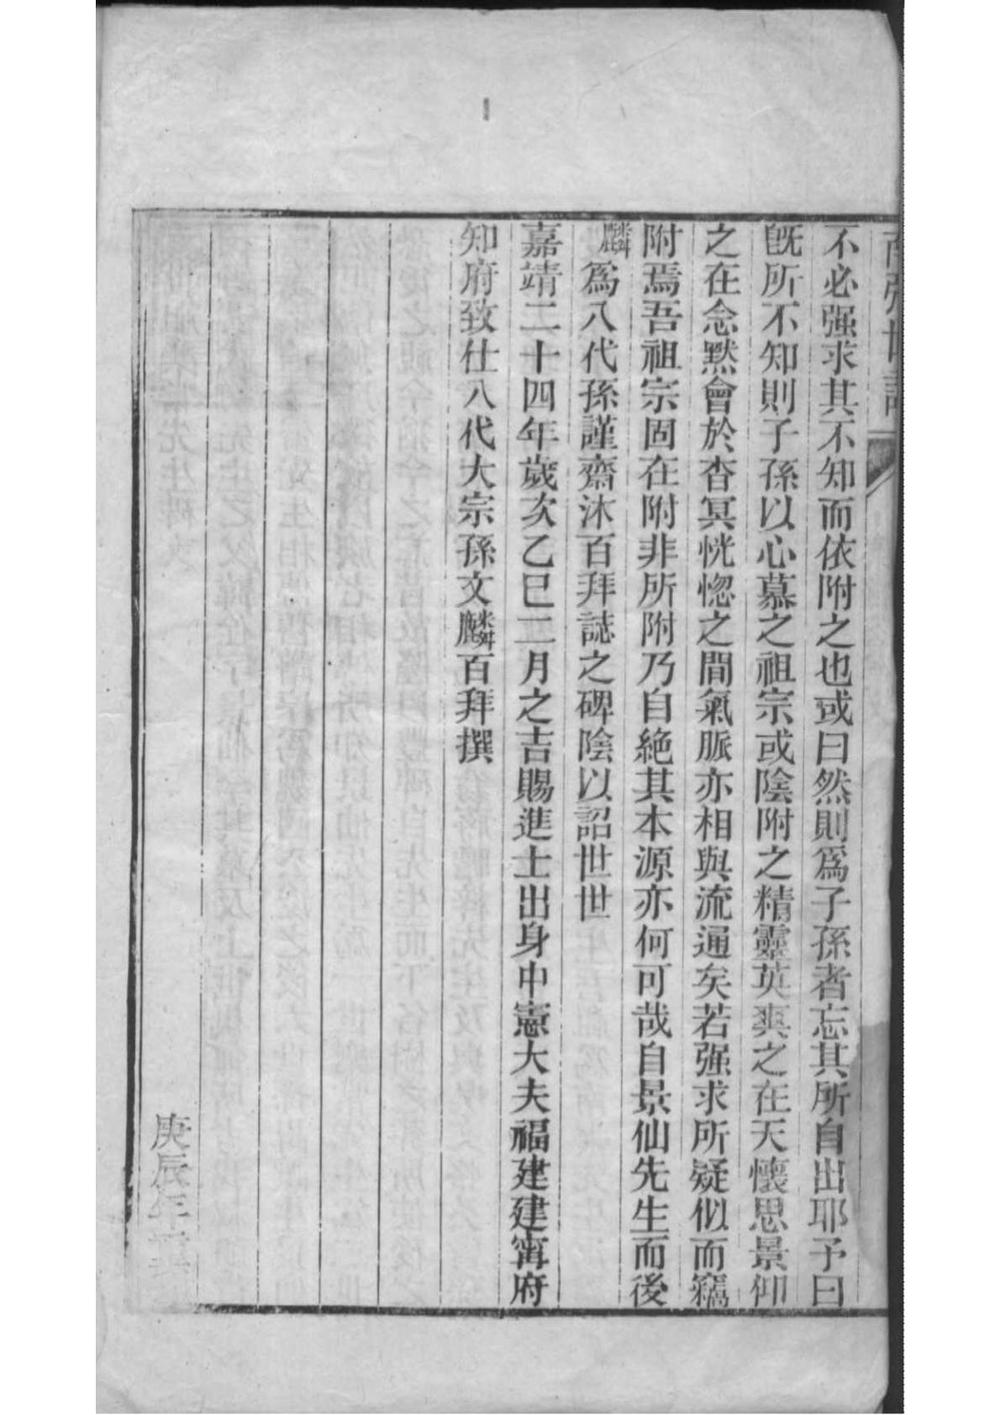 不必强求其不知而依附之也或曰然則爲子孫者忘其所自出耶予曰
旣所不知則子孫以心慕之祖宗或陰附之精靈英爽之在天懷思景仰
之在念黙會於杳冥恍惚之間氣脈亦相與流通矣若强求所疑似而竊
附焉吾祖宗固在附非所附乃自絶其本源亦何可哉自景仙先生而後
麟爲八代孫謹齋沐百拜誌之碑陰以詔世世
嘉靖二十四年歲次乙巳二月之吉賜進士出身中憲大夫福建建寗府
知府致仕八代大宗孫文麟百拜撰
庚辰年